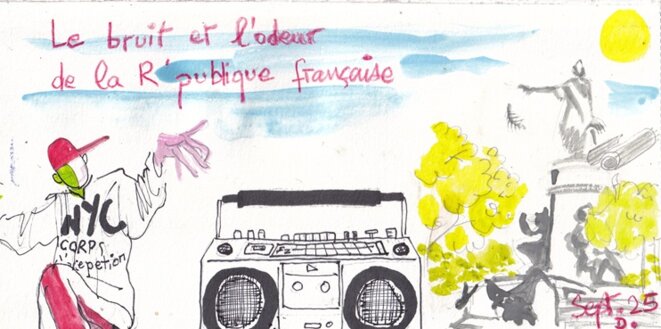 Le bruit et l'odeur
de la R'publique française
NYC
CORPS
repetition
Sept. 25
D.